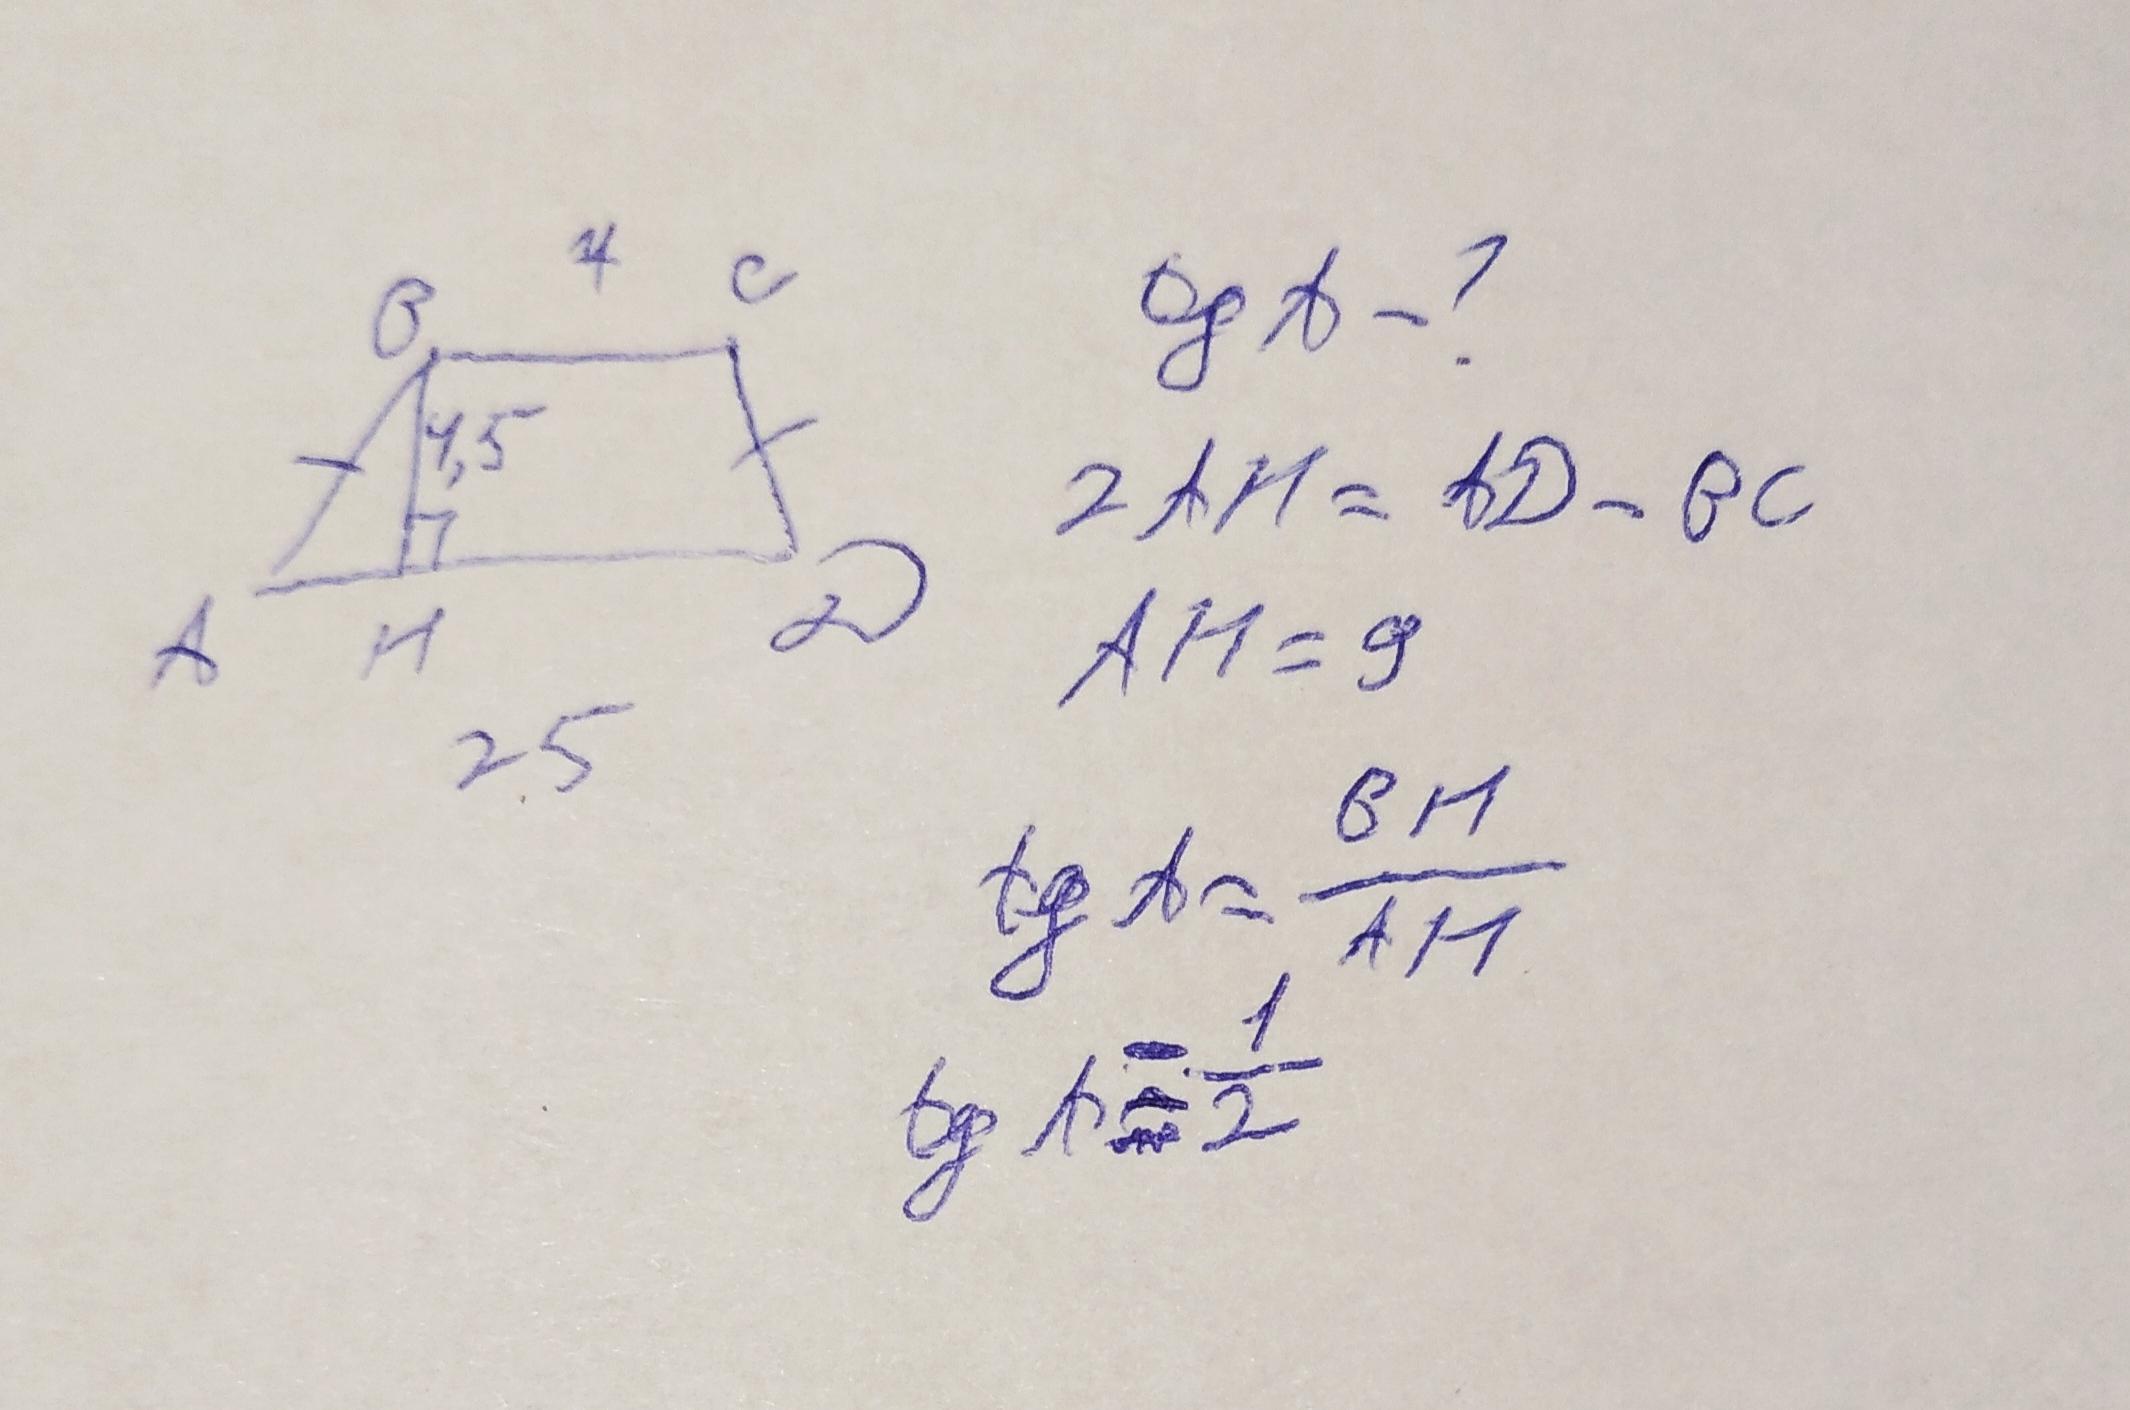 7
B C
4,5
A H D
25
tg A - ?
2 AH = AD - BC
AH = 9
tg A = BH / AH
tg A = 1/2